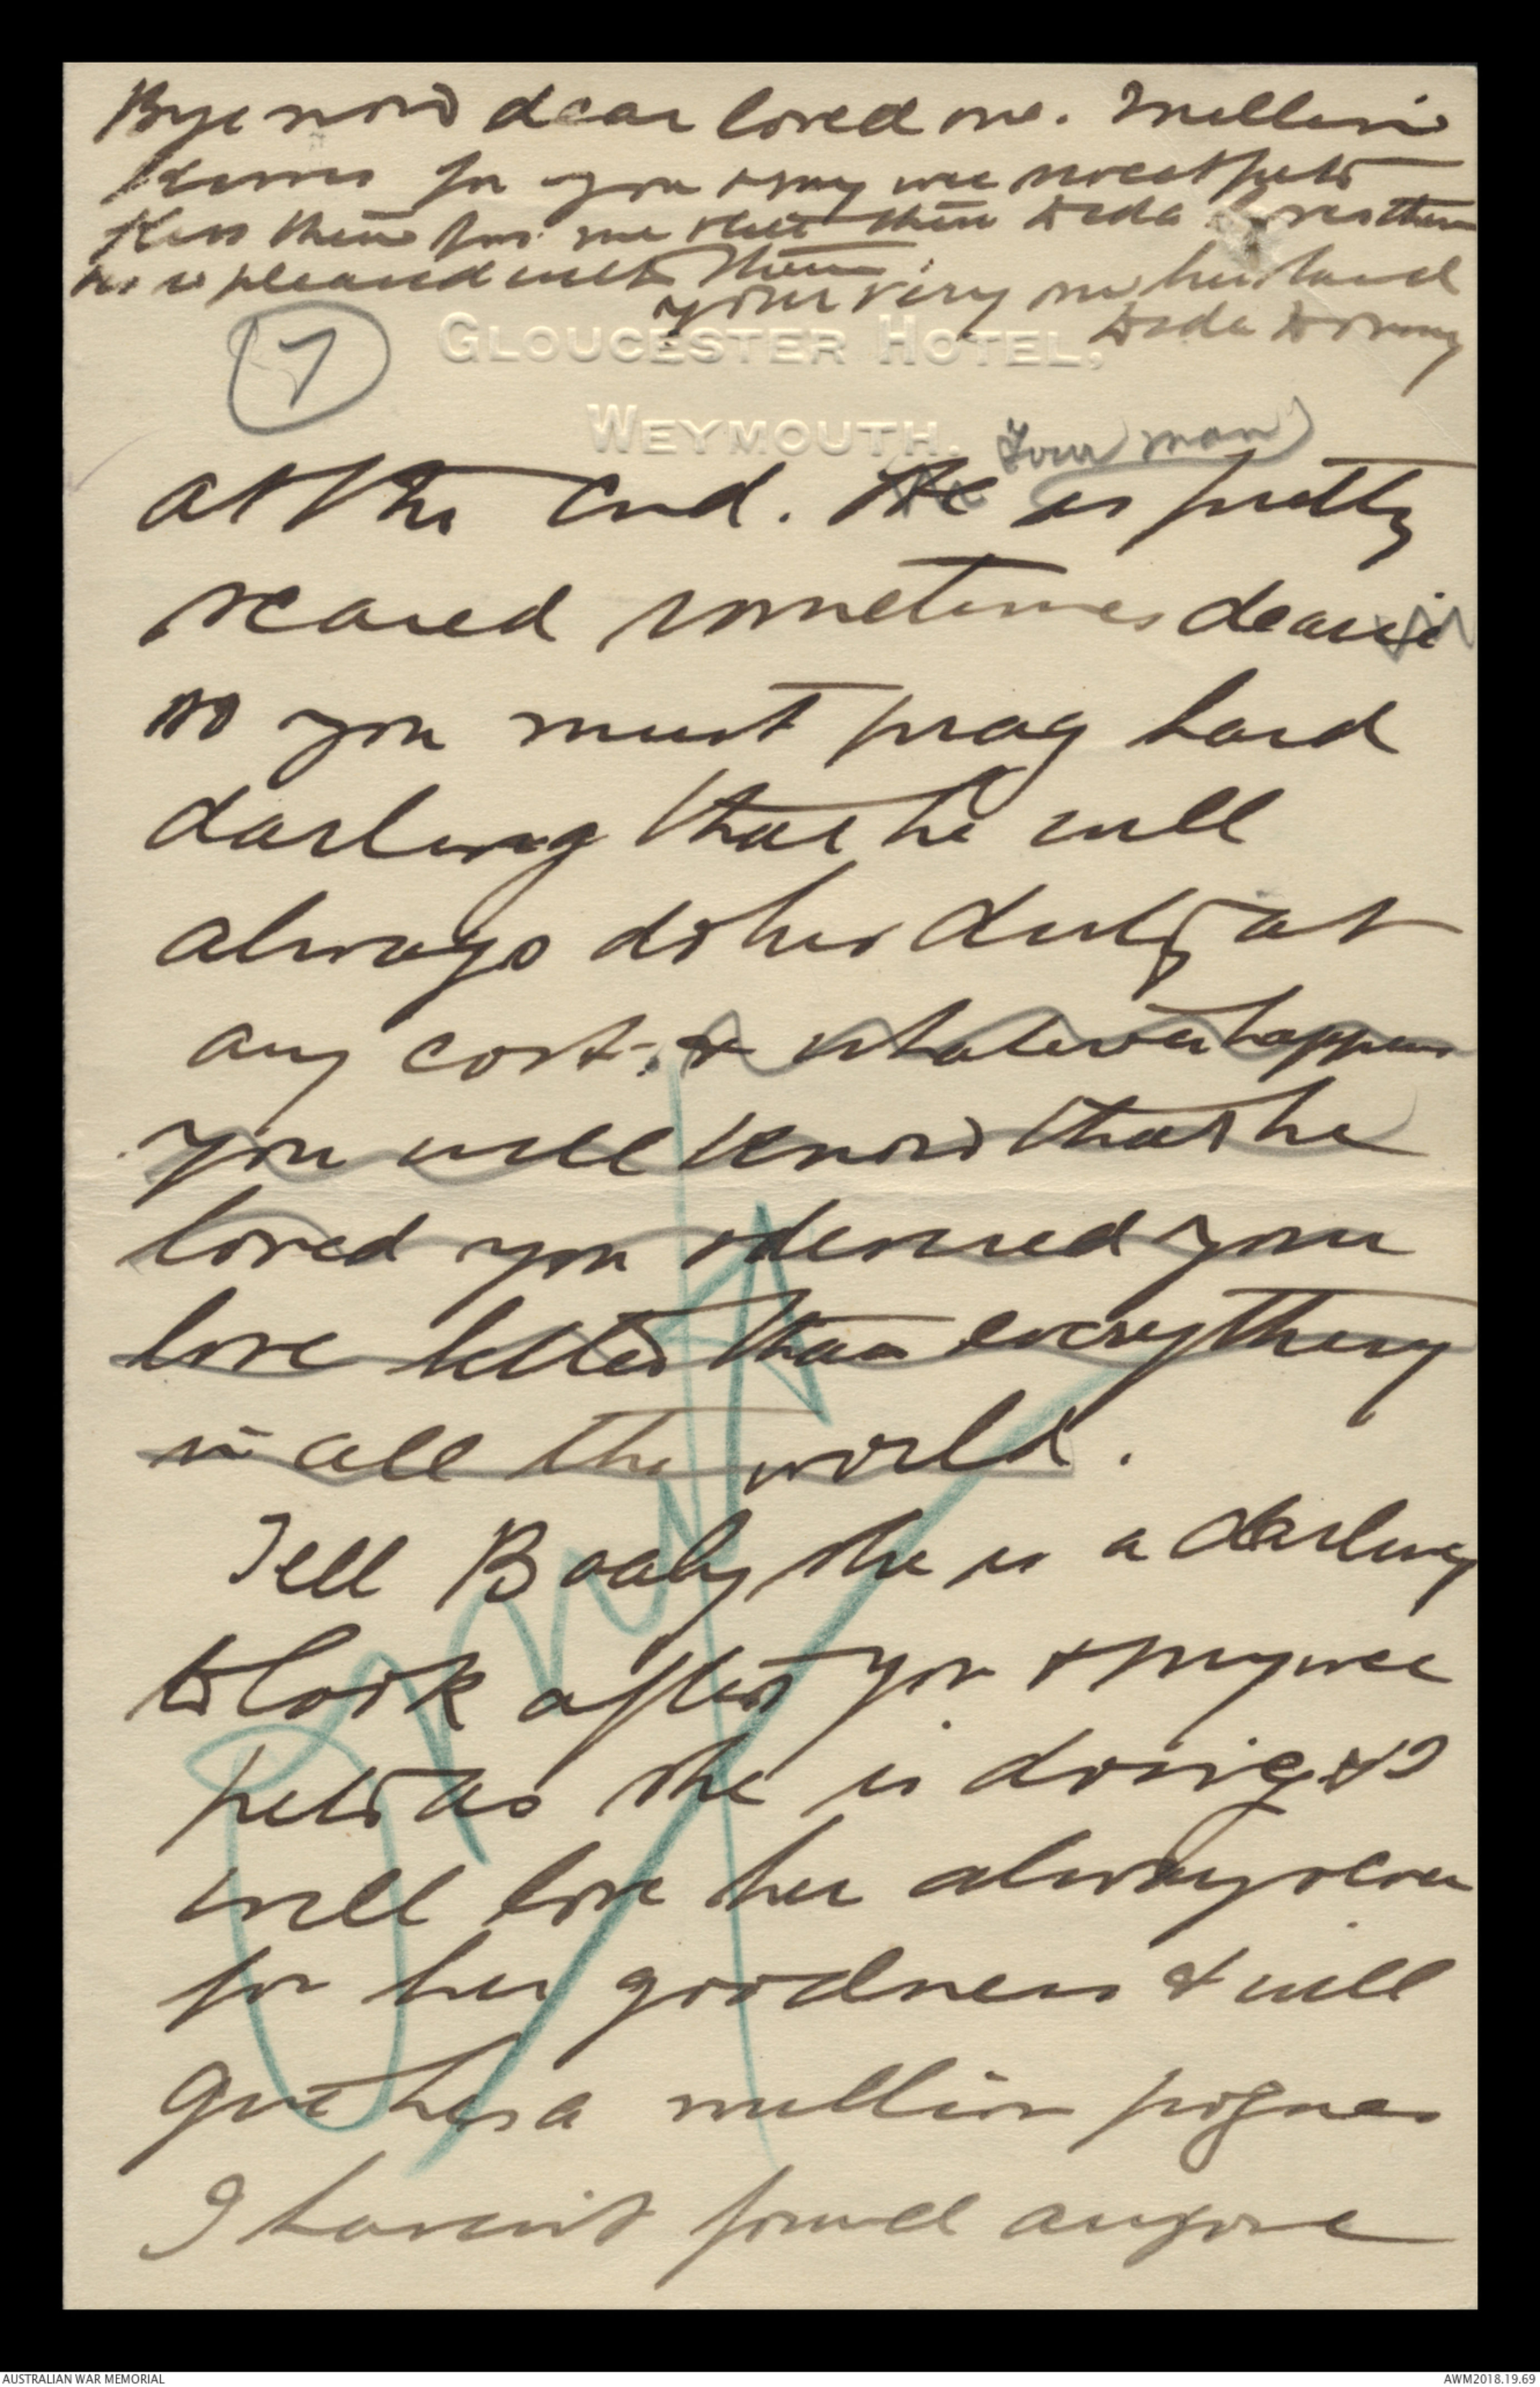 Bye now dear loved one. Million
kisses for you & my wee sweet pets
Kiss them for me & tell them Dada loves them
& is pleased with them.
your very own husband
Dada
GLOUCESTER HOTEL,
WEYMOUTH.
7
Your man
at the end. He is pretty
scared sometimes dearie
so you must pray hard
darling that he will
always do his duty at
any cost. & whatever happens
you will know that he
loved you & desired your
love better than everything
in all the world.
Tell Baaly she is a darling
to look after you & my wee
pets as she is doing & I
will love her always & ever
for her goodness & will
give her a million
I haven't found anyone
Omit
AUSTRALIAN WAR MEMORIAL
AWM2018.19.69